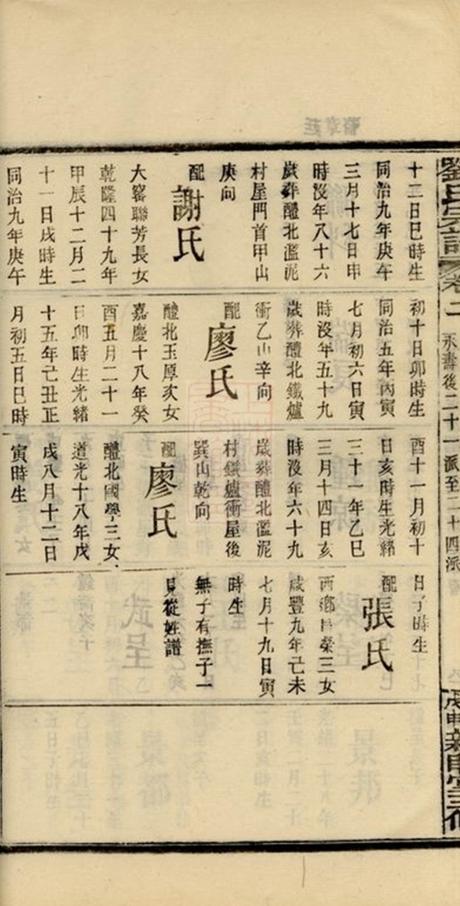 劉氏宗譜
卷二
永書後二十一派至二十四派
十二日巳時生
同治九年庚午
三月十七日申
時沒年八十六
歲葬醴北濫泥
村屋門首甲山
庚向
配
謝氏
大窰聯芳長女
乾隆四十九年
甲辰十二月二
十一日戌時生
同治九年庚午
初十日卯時生
同治五年丙寅
七月初六日寅
時沒年五十九
歲葬醴北鐵爐
衝乙山辛向
配
廖氏
醴北玉厚次女
嘉慶十八年癸
酉五月二十一
日卯時生光緒
十五年己丑正
月初五日巳時
酉十一月初十
日亥時生光緒
三十一年乙巳
三月十四日亥
時沒年六十九
歲葬醴北濫泥
村鐵爐衝屋後
巽山乾向
配
廖氏
醴北國學三女
道光十八年戊
戌八月十二日
寅時生
日子時生
配
張氏
西鄉昌榮三女
咸豐九年己未
七月十九日寅
時生
無子有撫子一
見從姓譜